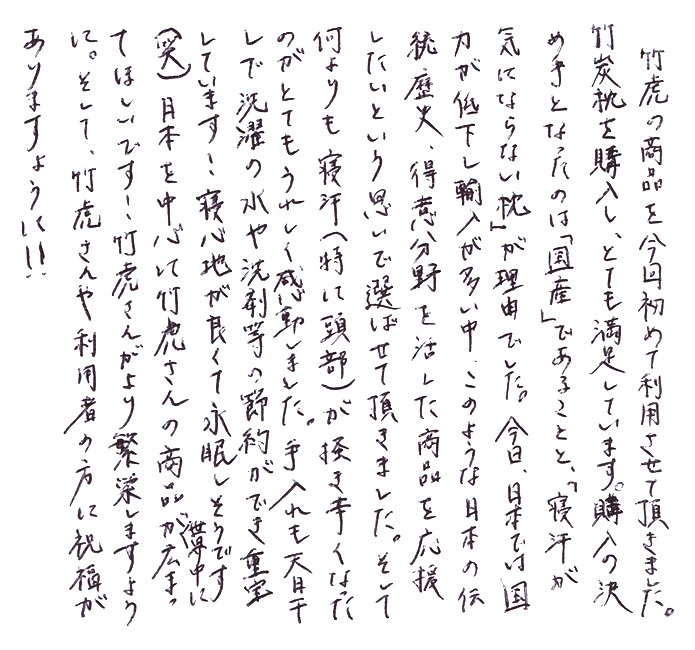 竹虎の商品を今回初めて利用させて頂きました。
竹炭枕を購入し、とても満足しています。購入の決
め手となったのは「国産」であることと、「寝汗が
気にならない枕」が理由でした。今日、日本では国
力が低下し輸入が多い中、このような日本の伝
統、歴史、得意分野を活した商品を応援
したいという思いで選ばせて頂きました。そして
何よりも寝汗(特に頭部)が掻き辛くなった
のがとてもうれしく感動しました。手入れも天日干
しで洗濯の水や洗剤等の節約ができ重宝
しています!寝心地が良くて永眠しそうです
(笑)日本を中心に竹虎さんの商品が世界中に広まっ
てほしいです!竹虎さんがより繁栄しますよう
に。そして、竹虎さんや利用者の方に祝福が
ありますように!!